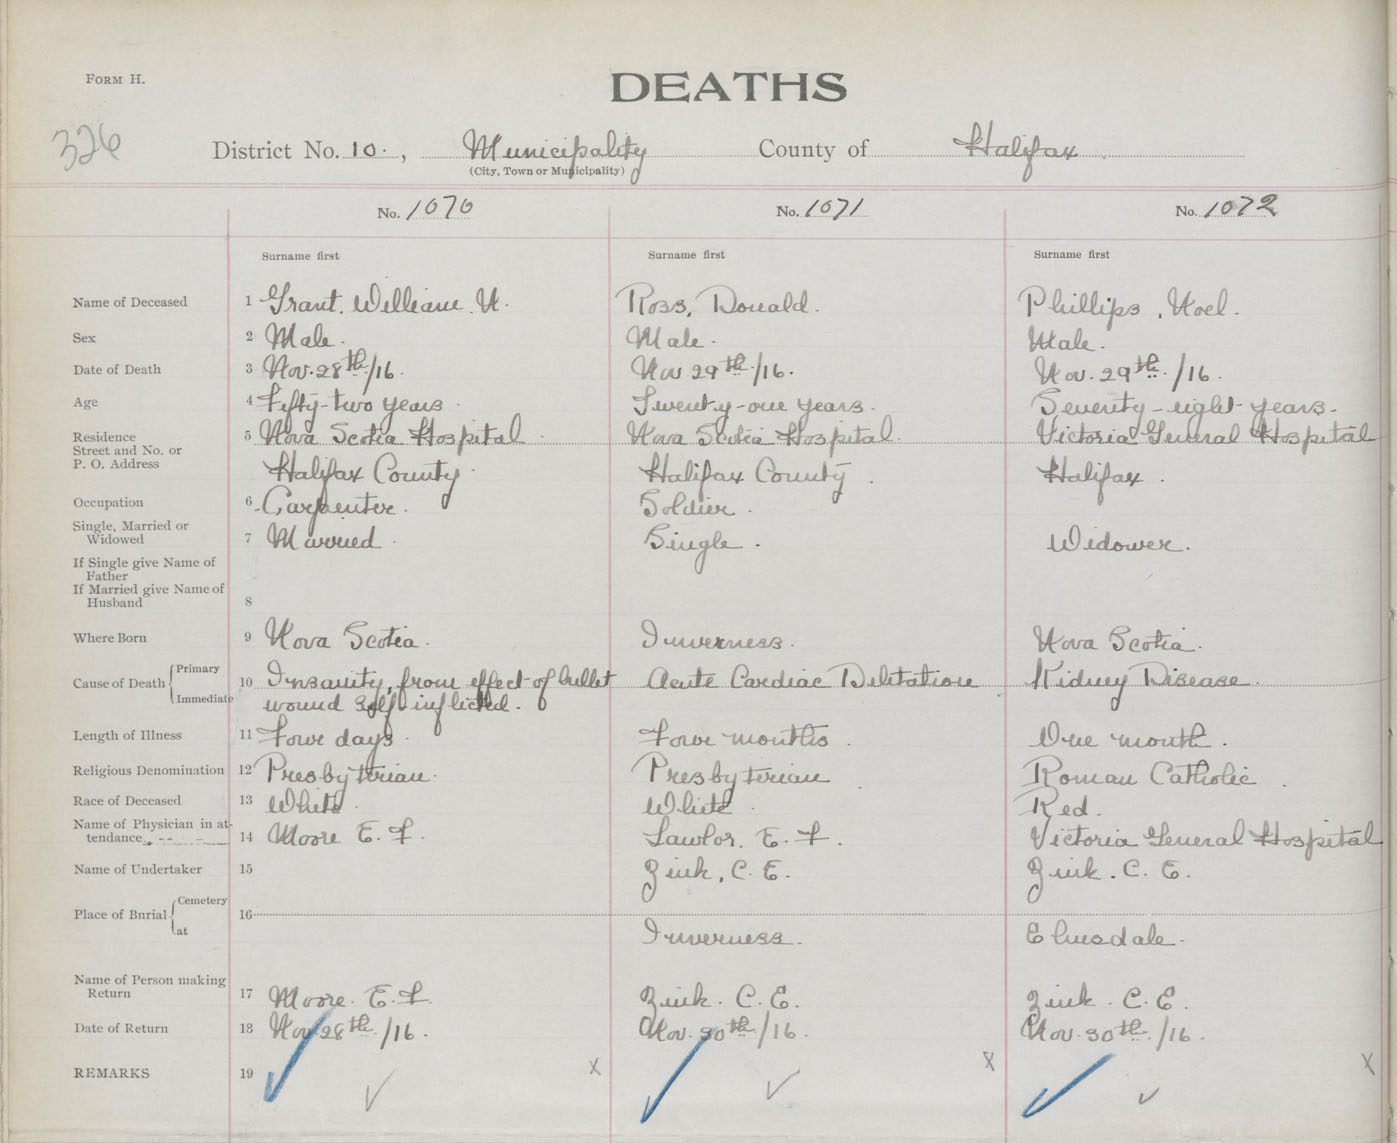 FORM H.
DEATHS
326
District No. 10. , Municipality County of Halifax
(City, Town or Municipality)
No. 1070 No. 1071 No. 1072
Surname first Surname first Surname first
Name of Deceased 1 Grant, William N. Ross, Donald. Phillips, Noel.
Sex 2 Male. Male. Male.
Date of Death 3 Nov. 28th/16. Nov 29th/16. Nov. 29th./16.
Age 4 Fifty-two years. Twenty-one years. Seventy-eight years.
Residence 5 Nova Scotia Hospital. Nova Scotia Hospital. Victoria General Hospital
Street and No. or
P. O. Address Halifax County Halifax County. Halifax.
Occupation 6 Carpenter. Soldier.
Single, Married or
Widowed 7 Married. Single. Widower.
If Single give Name of
Father
If Married give Name of
Husband 8
Where Born 9 Nova Scotia. Inverness. Nova Scotia.
Cause of Death Primary 10 Insanity, from effect of bullet Acute Cardiac Dilitation Kidney Disease.
Immediate wound self inflicted.
Length of Illness 11 Four days. Four months. One month.
Religious Denomination 12 Presbyterian. Presbyterian Roman Catholic.
Race of Deceased 13 White. White. Red.
Name of Physician in at-
tendance 14 Moore E. F. Lawlor. E. F. Victoria General Hospital
Name of Undertaker 15 Zink, C. E. Zink. C. E.
Place of Burial Cemetery 16
at Inverness. Elmsdale.
Name of Person making
Return 17 Moore. E. F. Zink. C. E. Zink. C. E.
Date of Return 18 Nov 28th./16. Nov. 30th/16. Nov. 30th./16.
REMARKS 19 x x x